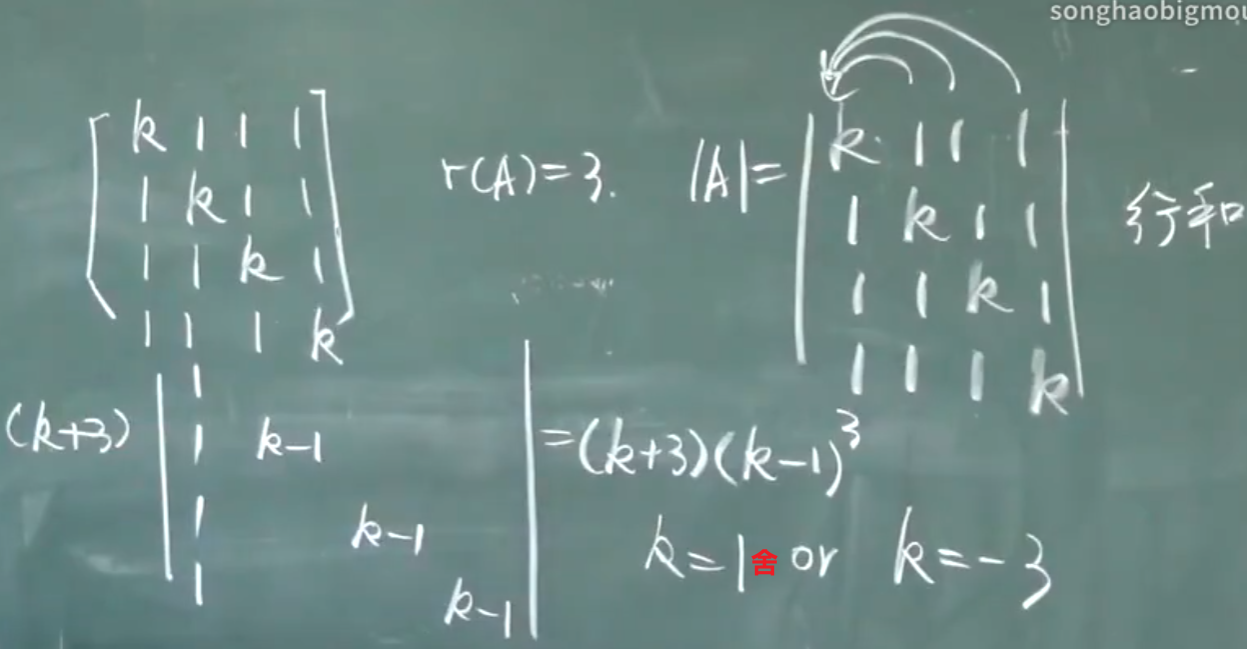 songhaobigmou
k 1 1 1
1 k 1 1
1 1 k 1
1 1 1 k
r(A)=3.
|A|=
k 1 1 1
1 k 1 1
1 1 k 1
1 1 1 k
行和
(k+3)
1
1 k-1
1 k-1
1 k-1
=(k+3)(k-1)³
k=1舍 or k=-3